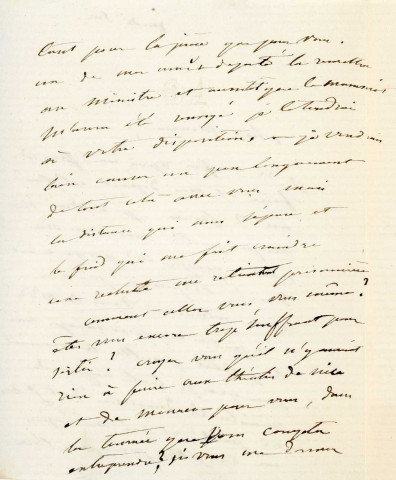 tant pour la pièce que pour vous.
un de mes amis député la remettra
au ministre et aussitôt que le manuscrit
m'aura été renvoyé je le tiendrai
à votre disposition, je voudrais
bien causer un peu longuement
de tout cela avec vous mais
la distance qui nous sépare et
le froid qui me fait craindre
une rechute me retient prisonnière
comment allez vous vous même?
êtes vous encore trop souffrant pour
sortir? croyez vous qu'il n'y aurait
rien à faire aux théâtres de nice
et de monaco pour vous, dans
la tournée que vous comptez
entreprendre? je vous me donner